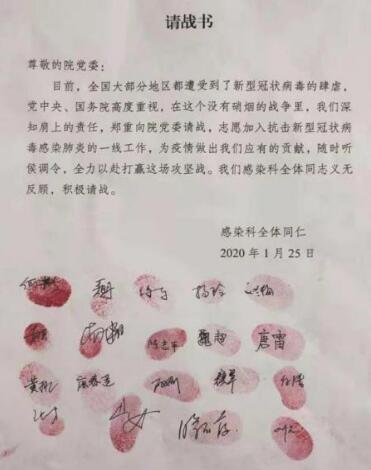 请战书
尊敬的院党委：
目前，全国大部分地区都遭受到了新型冠状病毒的肆虐，
党中央、国务院高度重视，在这个没有硝烟的战争里，我们深
知肩上的责任，郑重向院党委请战，志愿加入抗击新型冠状病
毒感染肺炎的一线工作，为疫情做出我们应有的贡献，随时听
侯调令，全力以赴打赢这场攻坚战。我们感染科全体同志义无
反顾，积极请战。
感染科全体同仁
2020 年 1 月 25 日
唐雷